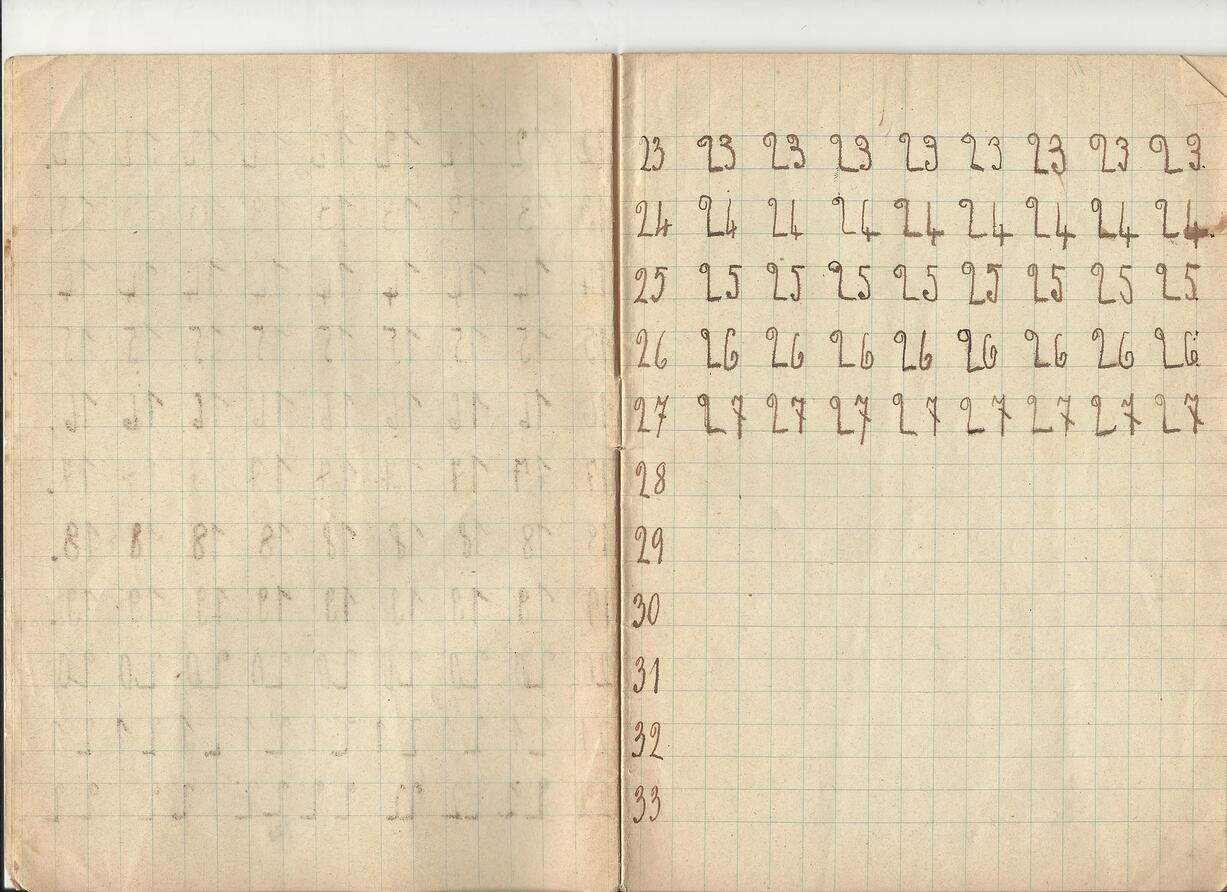 23 23 23 23 23 23 23 23 23.
24 24 24 24 24 24 24 24 24.
25 25 25 25 25 25 25 25 25
26 26 26 26 26 26 26 26 26
27 27 27 27 27 27 27 27 27
28
29
30
31
32
33